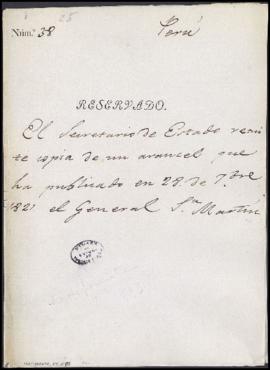 25
Perú
Núm.º 38
RESERVADO.
El Secretario de Estado remi
te copia de un arancel que
ha publicado en 28 de 7.bre
1821 el General Sn Martín